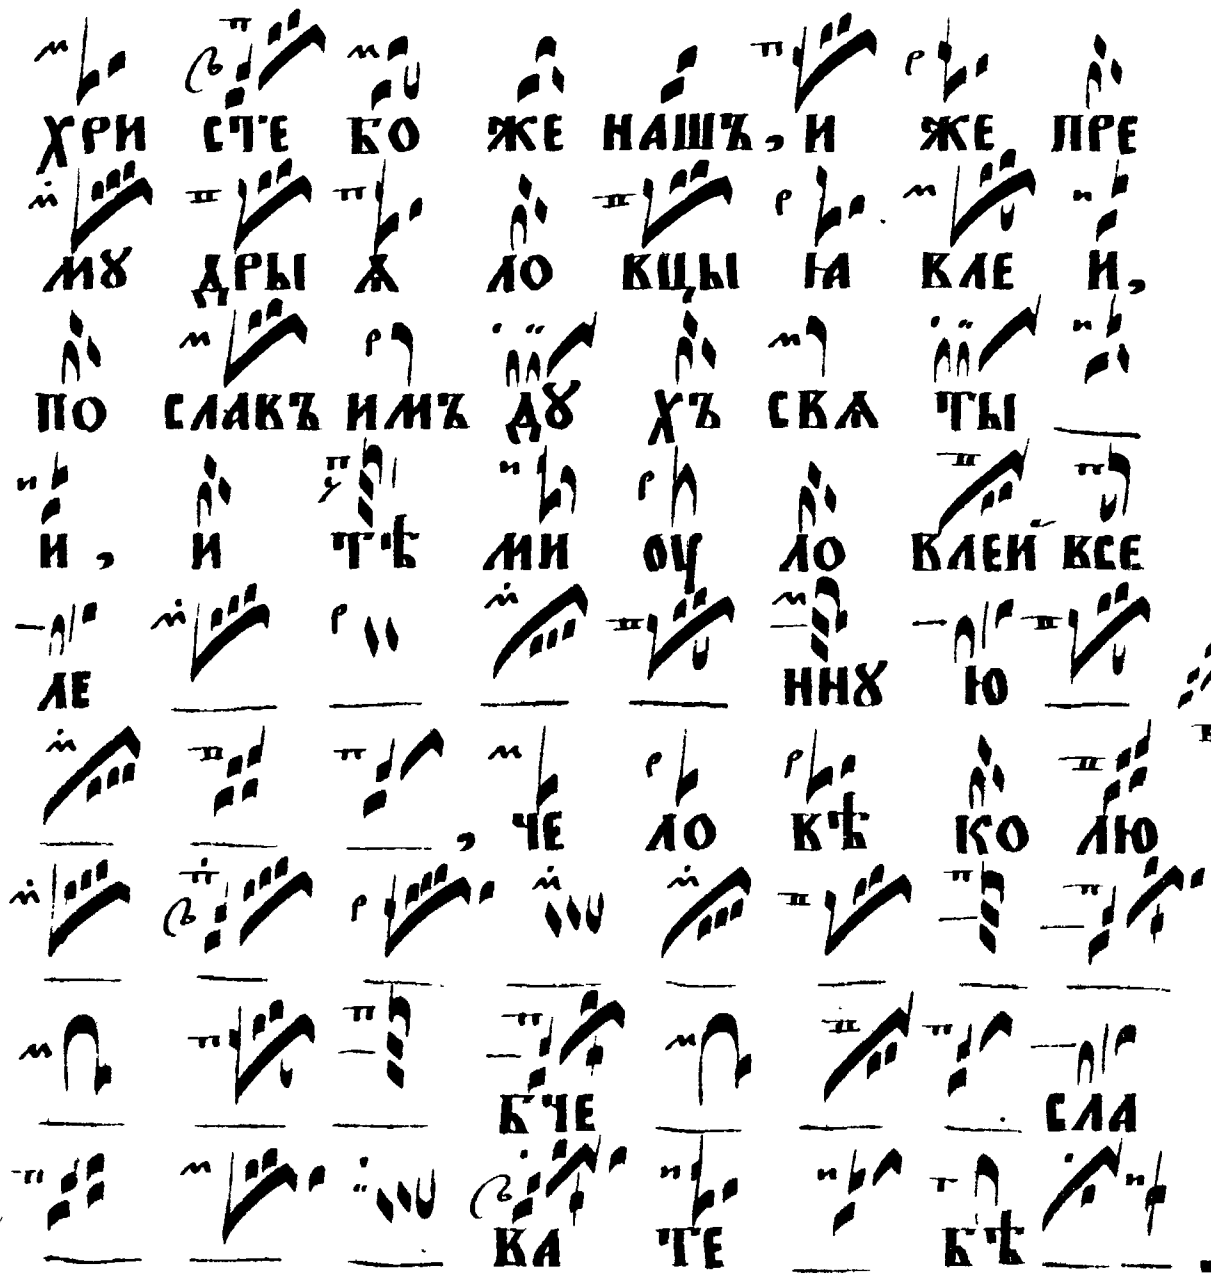 ХРИ СТЕ БО ЖЕ НАШЪ, И ЖЕ ПРЕ
МꙊ ДРЫ Ѧ ЛО ВЦЫ ꙖВЛЕ И,
ПО СЛАВЪ ИМЪ ДꙊ ХЪ СВѦ ТЫ
И, И ТѢ МИ ОУ ЛО ВЛЕЙ ВСЕ
ЛЕ ННꙊ Ю
, ЧЕ ЛО ВѢ КО ЛЮ
БЧЕ СЛА
ВА ТЕ БѢ